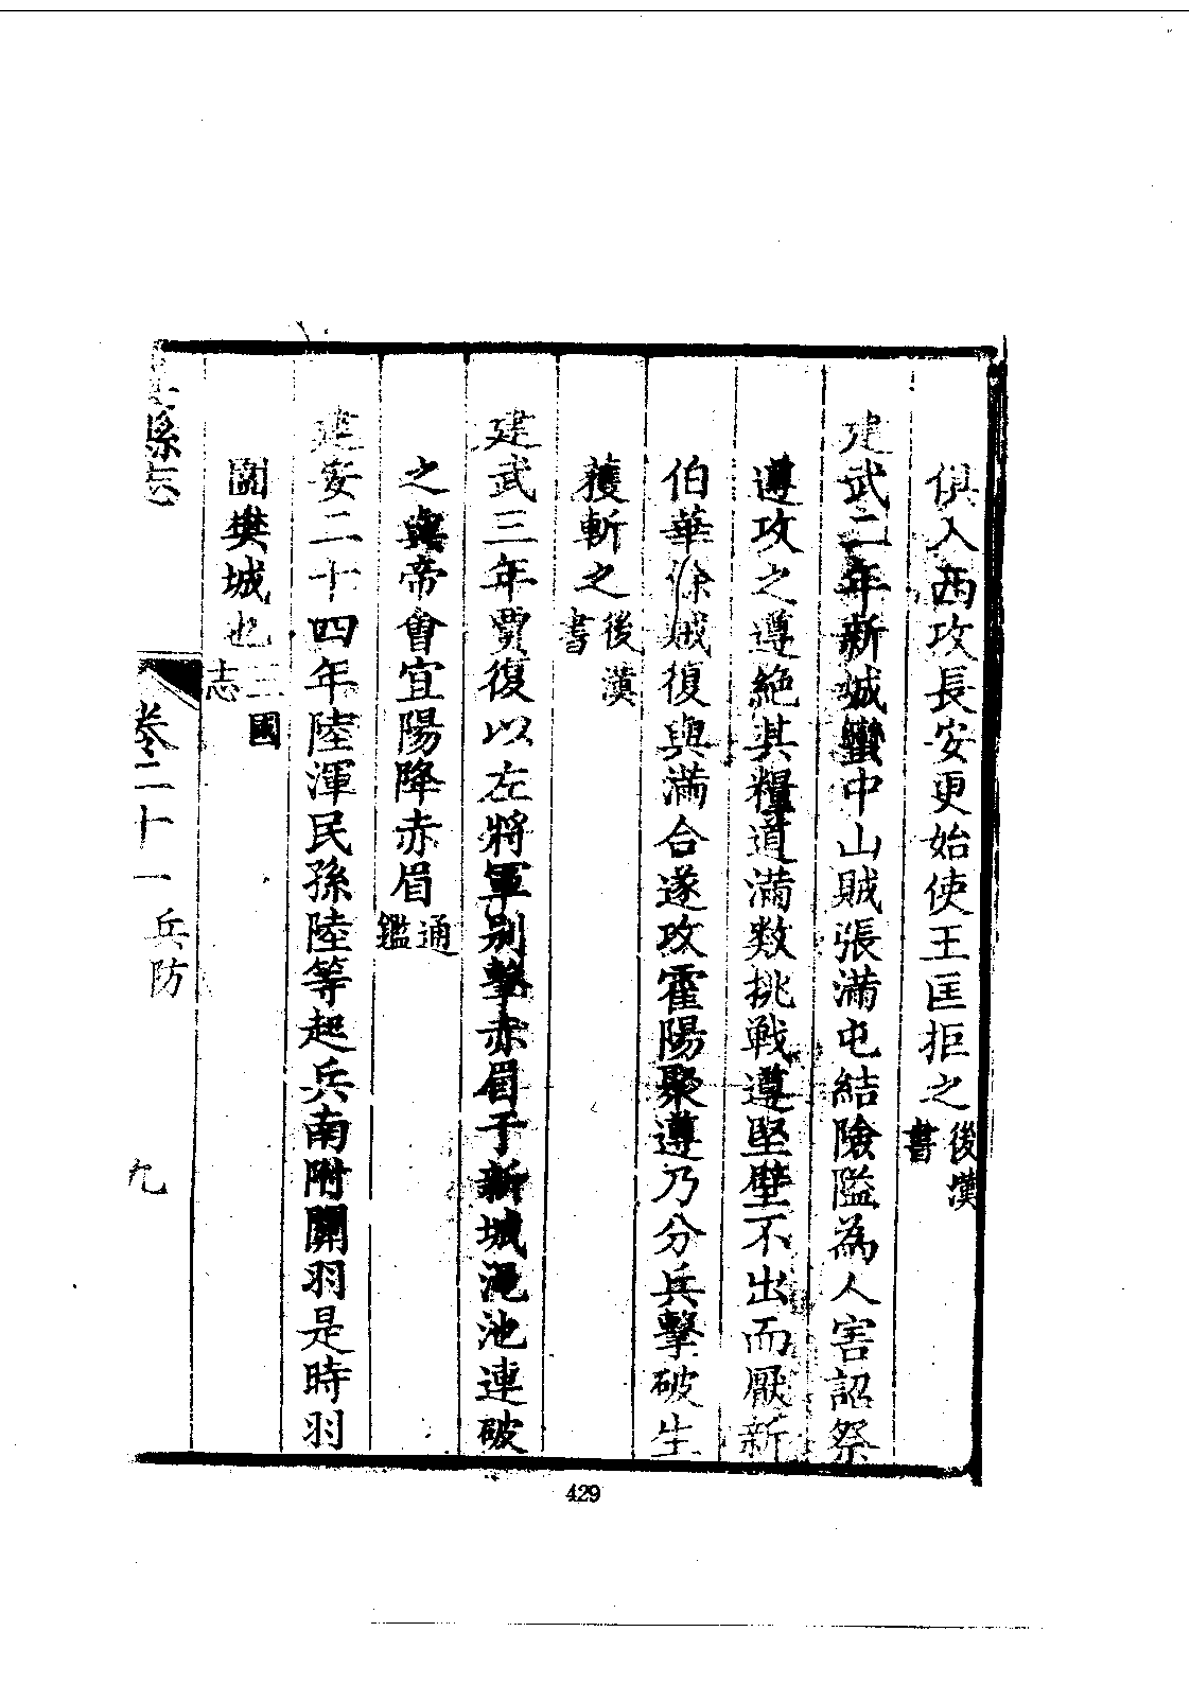 俱入西攻長安更始使王匡拒之後漢書
建武二年新城蠻中山賊張滿屯結險隘為人害詔祭
遵攻之遵絕其糧道滿數挑戰遵堅壁不出而厭新
伯華餘賊復與滿合遂攻霍陽聚遵乃分兵擊破生
獲斬之後漢書
建武三年賈復以左將軍別擊赤眉于新城澠池連破
之與帝會宜陽降赤眉通鑑
建安二十四年陸渾民孫陸等起兵南附關羽是時羽
圍樊城也三國志
縣志
卷二十一 兵防
九
429